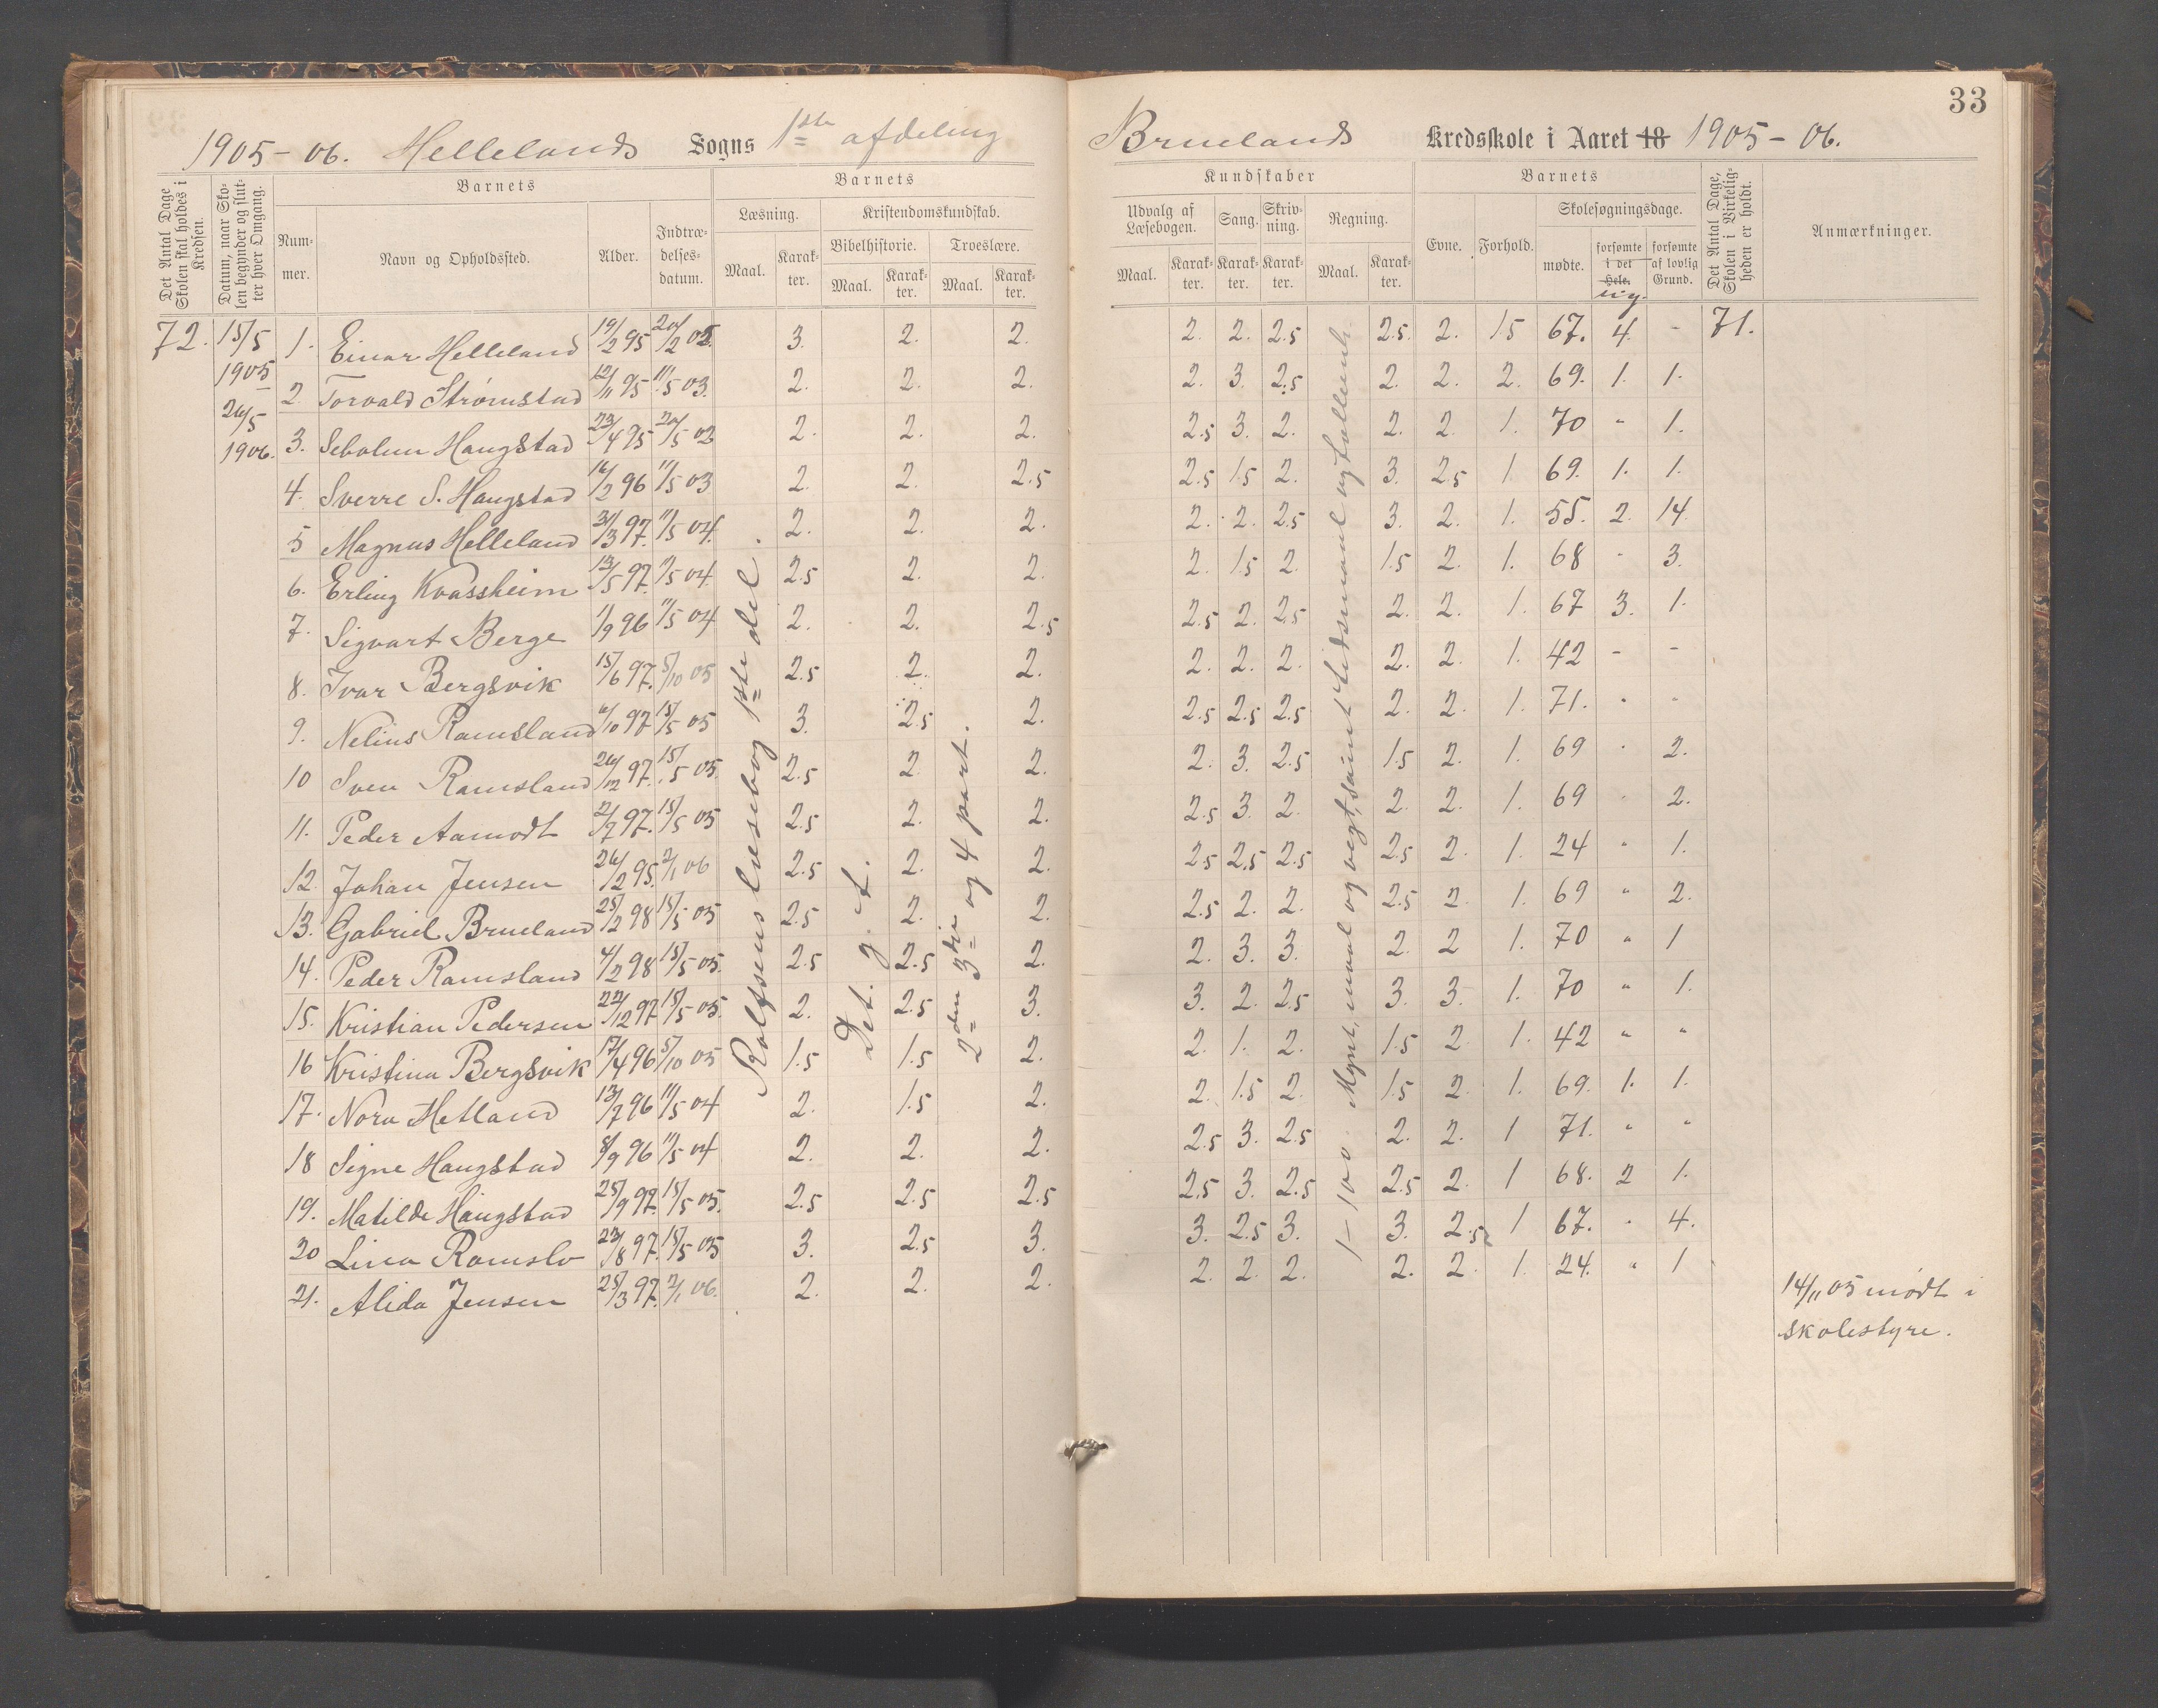 33
1905-06. Hellelands Sogns 1ste afdeling
Bruelands Kredsskole i Aaret 18 1905-06.
Det Antal Dage Skolen skal holdes i Kredsen.
Datum, naar Skolen begynder og slutter hver Omgang.
Barnets
Nummer.
Navn og Opholdssted.
Alder.
Indtrædelsesdatum.
Barnets
Læsning.
Maal.
Karakter.
Kristendomskundskab.
Bibelhistorie.
Maal.
Karakter.
Troeslære.
Maal.
Karakter.
Kundskaber
Udvalg af Læsebogen.
Maal.
Karakter.
Sang.
Karakter.
Skrivning.
Karakter.
Regning.
Maal.
Karakter.
Barnets
Evne.
Forhold.
Skolesøgningsdage.
mødte.
forsømte i det Hele.
forsømte af lovlig Grund.
Det Antal Dage, Skolen i Virkeligheden er holdt.
Anmærkninger.
72. 15/5 1905 26/5 1906.
1. Einar Helleland 19/2 95 20/2 02 3. 2. 2. 2. 2. 2.5 2.5 2. 1.5 67. 4. - 71.
2 Torvald Strømstad 12/11 95 11/5 03. 2. 2. 2. 2. 3. 2.5 2. 2. 2. 69. 1. 1.
3. Sebolun Haugstad 23/4 95 20/5 02 2. 2. 2. 2.5 3. 2. 2. 2. 1. 70 " 1.
4. Sverre S. Haugstad 16/2 96 11/5 03 2. 2. 2.5 2.5 1.5 2. 3. 2.5 1 69. 1. 1.
5 Magnus Helleland 31/3 97. 11/5 04. 2. 2. 2. 2. 2. 2.5 3. 2. 1. 55. 2. 14.
6. Erling Kvassheim 13/5 97. 11/5 04. 2.5 2. 2. 2. 1.5 2. 1.5 2. 1. 68 - 3.
7. Sigvart Berge 1/9 96 11/5 04 2. 2. 2.5 2.5 2. 2.5 2. 2. 1. 67 3. 1.
8. Ivar Bergsvik 15/6 97. 5/10 05 2.5 2. 2. 2. 2. 2. 2. 2. 1. 42 - -
9. Nelius Ramsland 6/10 97 15/5 05 3. 2.5 2. 2.5 2.5 2.5 2. 2. 1. 71. " "
10 Sven Ramsland 26/12 97. 15/5 05. 2.5 2 2. 2. 3. 2.5 1.5 2. 1. 69 " 2.
11. Peder Aamodt 2/7 97. 15/5 05 2.5 2. 2. 2.5 3. 2. 2. 2. 1. 69 " 2.
12. Johan Jensen 26/2 95. 2/1 06 2.5 2. 2. 2.5 2.5 2.5 2.5 2. 1. 24 " 1.
13. Gabriel Brueland 25/2 98 15/5 05 2.5 2. 2. 2.5 2. 2. 2.5 2 1. 69 " 2.
14. Peder Ramsland 4/2 98 15/5 05. 2.5 2.5 2. 2. 3. 3. 2. 2 1. 70 " 1
15. Kristian Pedersen 22/12 97 15/5 05. 2. 2.5 3. 3. 2. 2.5 3. 3. 1. 70 " 1.
16 Kristina Bergsvik 17/4 96 5/10 05 1.5 1.5 2. 2. 1. 2. 1.5 2 1. 42 " "
17. Nora Hetland 13/7 96 11/5 04 2. 1.5 2. 2. 1.5 2. 1.5 2 1. 69. 1. 1.
18 Signe Haugstad 8/9 96 11/5 04 2. 2. 2. 2.5 3. 2.5 2. 2. 1 71. " "
19. Matilde Haugstad 25/9 97. 15/5 05. 2.5 2.5 2.5 2.5 3. 2.5 2.5 2. 1 68. 2 1.
20 Lina Ramslo 23/8 97. 15/5 05 3. 2.5 3. 3. 2.5 3. 3. 2.5 1 67. " 4.
21. Alida Jensen 25/3 97. 2/1 06. 2. 2. 2. 2. 2. 2. 2. 2. 1. 24. " 1
Rolfsens læsebog 1ste del.
Det. g. t.
2den 3die og 4 part.
1-100. Mynt, maal og vegt, samt tidsmaal og
14/11 05 mødt i
skolestyre.